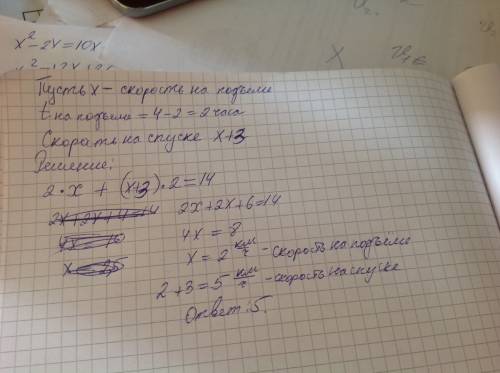 x²-2x=10x
Пусть x - скорость на подъеме
t на подъеме = 4-2=2 часа
Скорость на спуске x+3
Решение:
2·x + (x+3)·2=14
2x+2x+4=14 2x+2x+6=14
4x = 10 4x = 8
x = 2 км/ч - скорость на подъеме
2+3=5 км/ч - скорость на спуске
Ответ: 5.